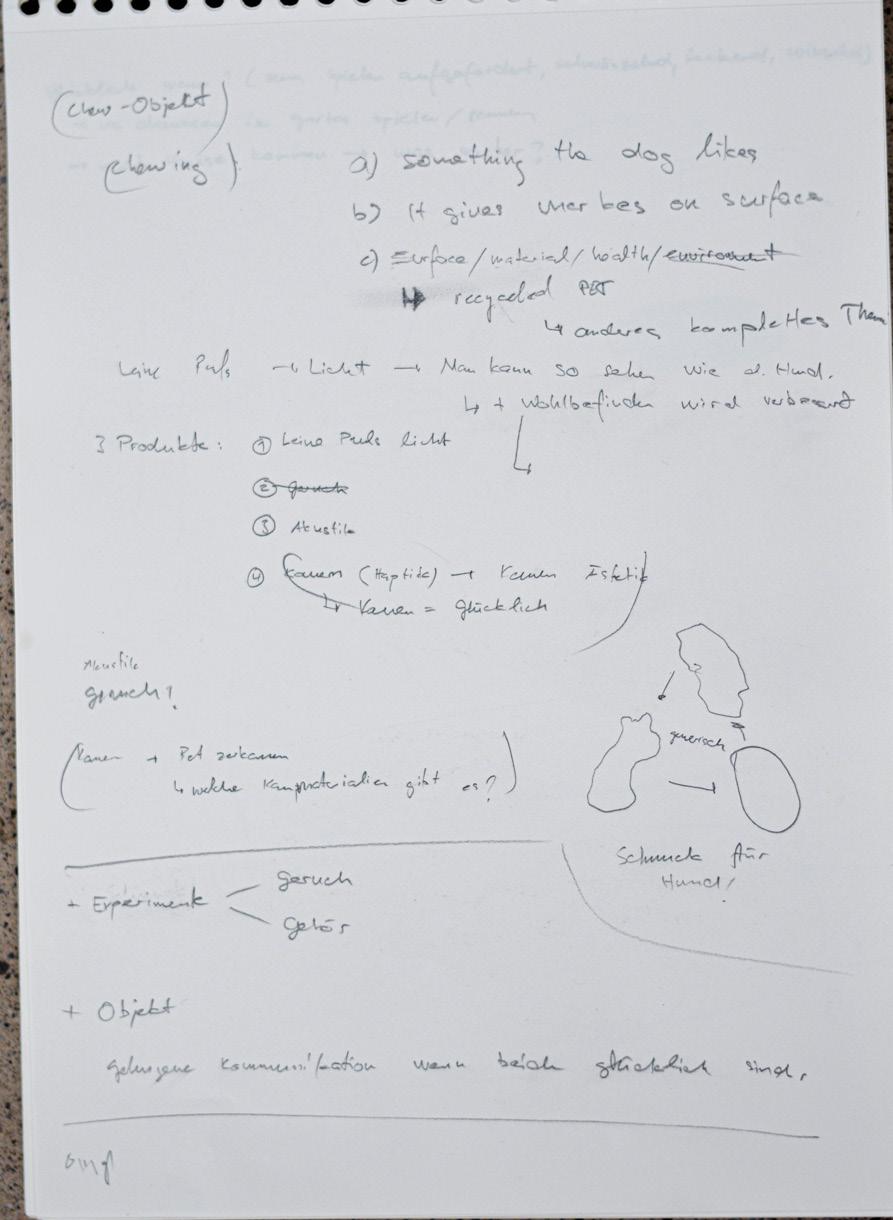 (Chew-Objekt)
(chewing)
a) something the dog likes
b) it gives on surface
c) surface/material/health/environment
↳ recycled PET
↳ anderes komplettes Thema
Leine Puls → Licht → Man kann so sehen wie d. Hund.
↳ + Wohlbefinden wird verbessert
3 Produkte: ① Leine Puls licht
② geruch
③ Akustik
④ Kauen (Haptik) → Kauen
↳ Kauen = glücklich
Akustik
geruch?
(Kauen → Pet zerkauen
↳ welche Kaumaterialien gibt es?)
generisch
Schmuck für
Hund!
+ Experimente
Geruch
Gehör
+ Objekt
gelungene Kommunikation wenn beide glücklich sind.